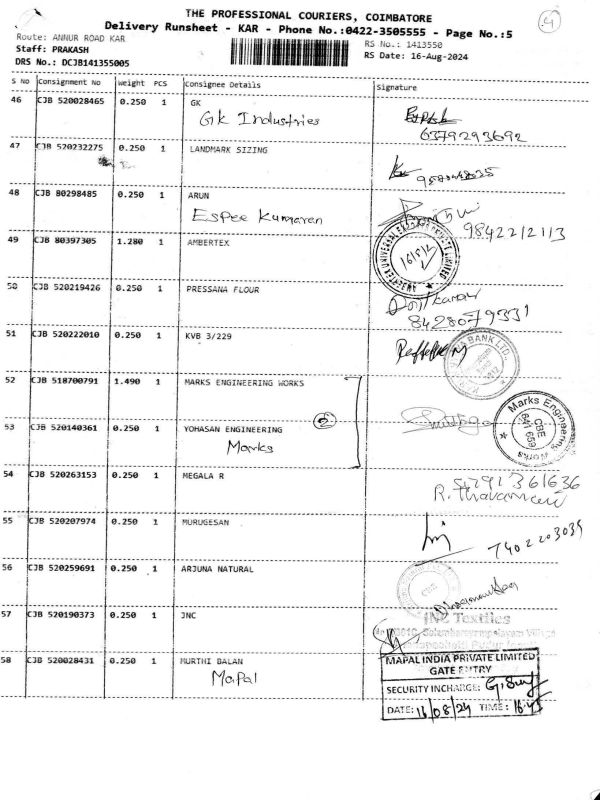 4
THE PROFESSIONAL COURIERS, COIMBATORE
Delivery Runsheet - KAR - Phone No.:0422-3505555 - Page No.:5
Route: ANNUR ROAD KAR
RS No.: 1413550
Staff: PRAKASH
RS Date: 16-Aug-2024
DRS No.: DCJB141355005
S No Consignment No Weight PCS Consignee Details Signature
46 CJB 520028465 0.250 1 GK
Gk Industries
6379293692
47 CJB 520232275 0.250 1 LANDMARK SIZING
48 CJB 80298485 0.250 1 ARUN
Espee Kumaran
9842212113
49 CJB 80397305 1.280 1 AMBERTEX
16/8/24
50 CJB 520219426 0.250 1 PRESSANA FLOUR
8428079331
51 CJB 520222010 0.250 1 KVB 3/229
BANK LTD.
52 CJB 518700791 1.490 1 MARKS ENGINEERING WORKS
2
Marks Engineering Works
CBE
641 659
53 CJB 520140361 0.250 1 YOHASAN ENGINEERING
Marks
54 CJB 520263153 0.250 1 MEGALA R
8791361636
55 CJB 520207974 0.250 1 MURUGESAN
7402203039
56 CJB 520259691 0.250 1 ARJUNA NATURAL
CBE
57 CJB 520190373 0.250 1 JNC
JNC Textiles
58 CJB 520028431 0.250 1 MURTHI BALAN
Mapal
MAPAL INDIA PRIVATE LIMITED
GATE ENTRY
SECURITY INCHARGE:
DATE: 16/08/24 TIME: 16:45